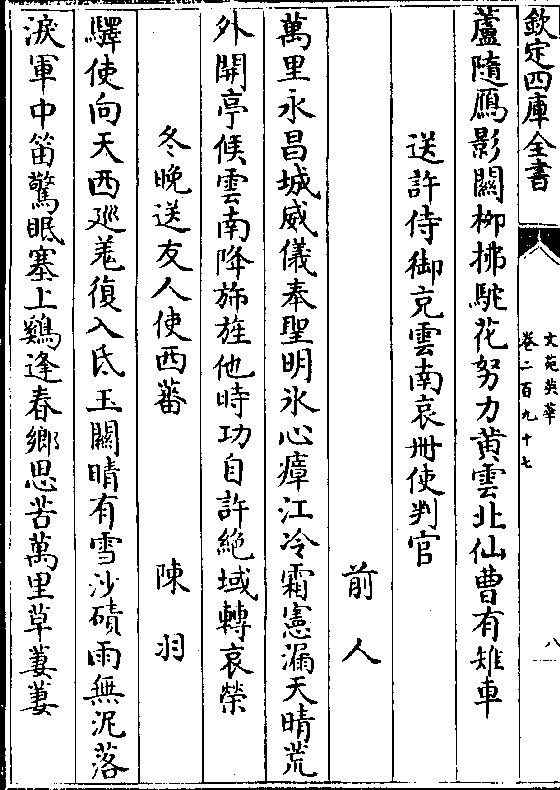 欽定四庫全書
文苑英華
卷二百九十七
八
蘆隨鴈影闗柳拂駞花努力黄雲北仙曹有雉車
送許侍御充雲南哀冊使判官
前人
萬里永昌城威儀奉聖明氷心瘴江冷霜憲漏天晴荒
外開亭候雲南降斾旌他時功自許絶域轉哀榮
冬晩送友人使西蕃
陳羽
驛使向天西廵羗復入氐玉闗晴有雪沙磧雨無泥落
淚軍中笛驚眠塞上鷄逢春鄉思苦萬里草萋萋